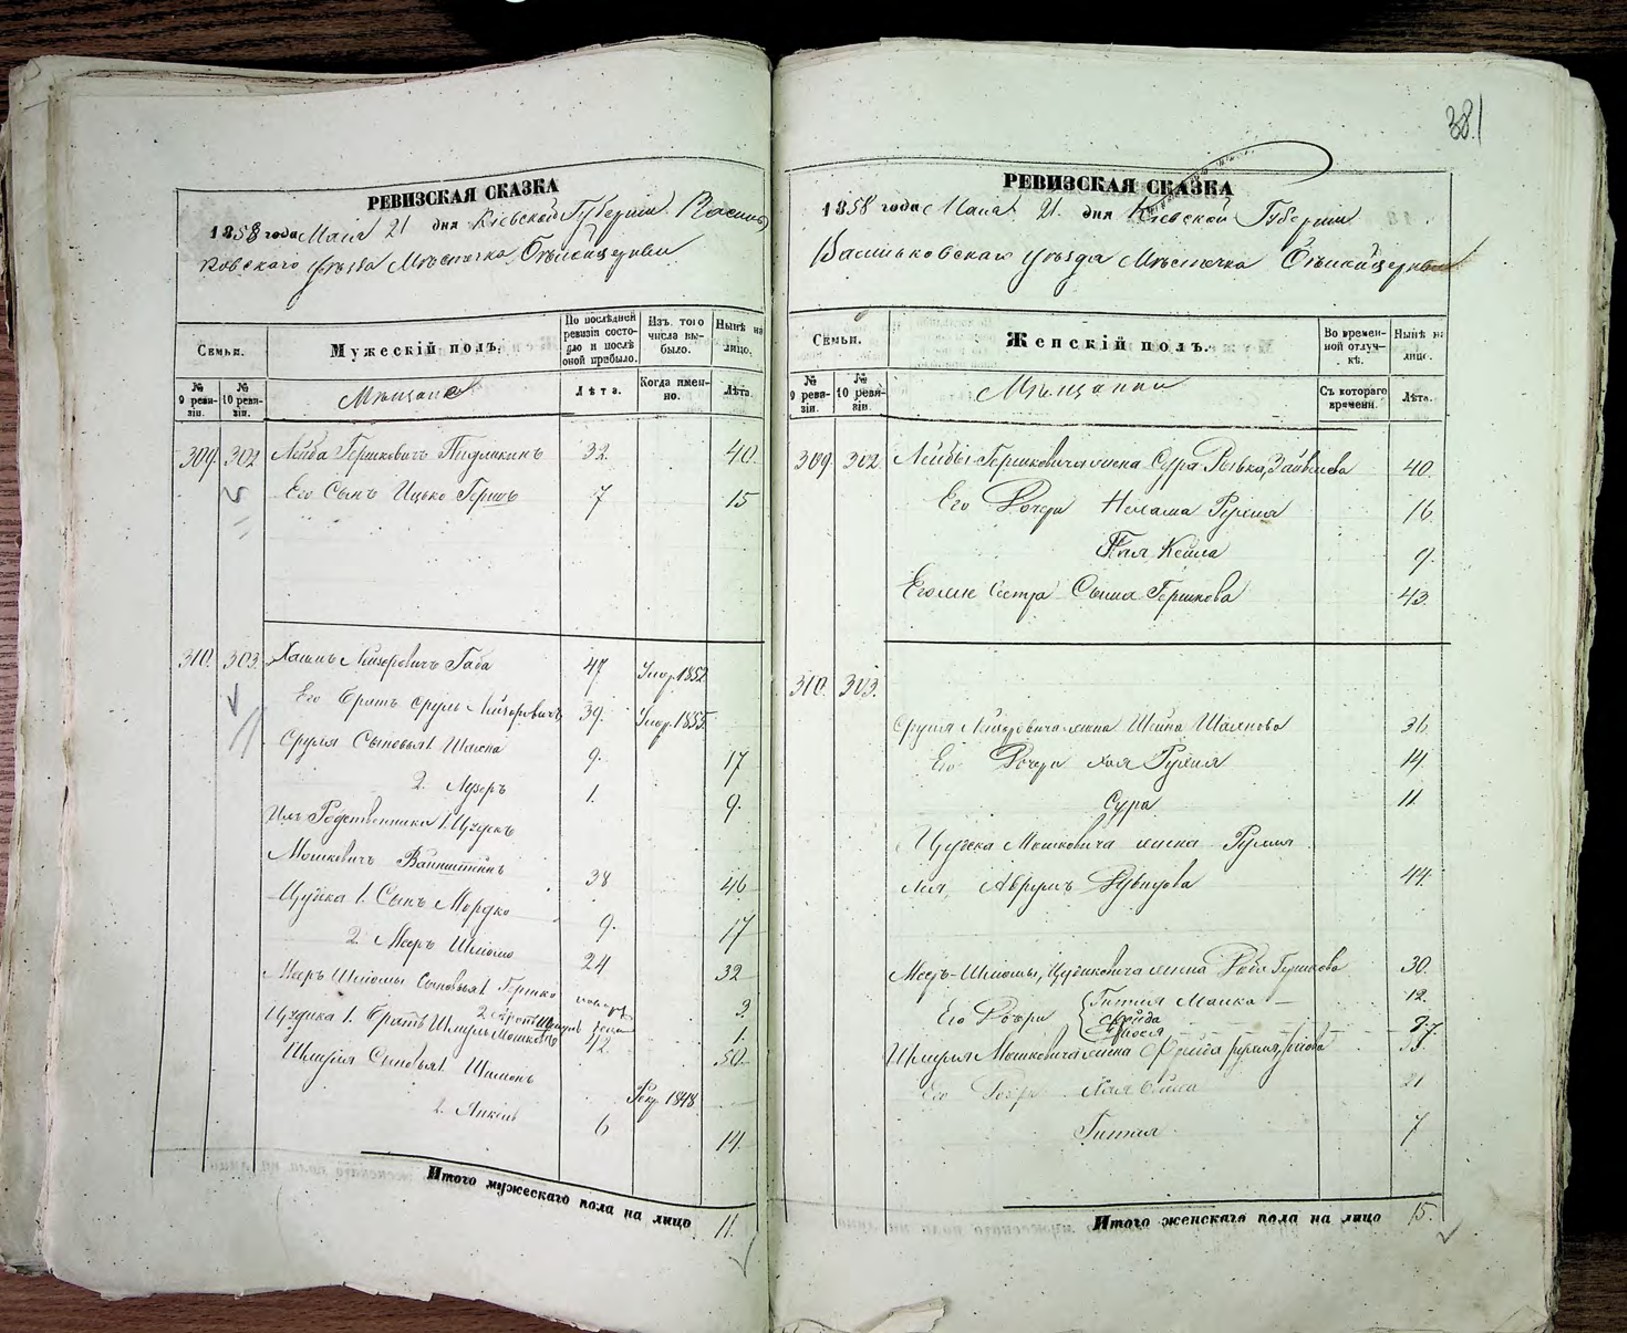 381
РЕВИЗСКАЯ СКАЗКА
1858 года Маія 21 дня Кіевской Губерніи Василь
ковскаго уѣзда Мѣстечка Бѣлойцеркви
Семьи.
Мужескій полъ.
По послѣдней ревизіи состояло и послѣ оной прибыло.
Изъ того числа выбыло.
Нынѣ на лицо.
№ 9 ревизіи.
№ 10 ревизіи.
Мѣщане
Лѣта.
Когда именно.
Лѣта.
309. 302 Лейба Гершковичъ 32. 40.
Его Сынъ Ицько Гершъ 7 15
310. 303. Хаимъ Лейзоровичъ Габа 47 Умер. 1852
Его Братъ Сруль Лейзоровичъ 39. Умер. 1855.
Сруля Сыновья 1. Шаена 9. 17
2. Лузеръ 1. 9.
Ихъ Родственники 1. Цудикъ
Мошковичъ Вайнштейнъ 38 46
Цудика 1. Сынъ Мордко 9. 17
2. Мееръ Шлюомо 24 32
Мееръ Шлюомы Сыновья 1. Гершко 3.
2. 1.
Цудика 1. Братъ Шмуль Мошковъ 42. 50.
Шмуля Сыновья 1. Шимонъ Рекр. 1848.
2. Янкель 6 14.
Итого мужескаго пола на лицо 11.
РЕВИЗСКАЯ СКАЗКА
1858 года Маія 21. дня Кіевской Губерніи
Васильковскаго уѣзда Мѣстечка Бѣлойцеркви
Семьи.
Женскій полъ.
Во временной отлучкѣ.
Нынѣ на лицо.
№ 9 ревизіи.
№ 10 ревизіи.
Мѣщанки
Съ котораго времени.
Лѣта.
309. 302. Лейбы Гершковича жена Сура Рывка 40.
Его Дочери Нехама Рухля 16
Кейла 9.
Его же Сестра Гершкова 43.
310. 303.
Сруля Лейзоровича жена Шейна 36
Его Дочери Хая Рухля 14
Сура 11.
Цудека Мошковича жена Рухля
Лея Аврумъ Давидова 44.
Мееръ-Шлюомы, Цудиковича жена Гершкова 30.
Его Дочери Гитля Малка 12.
Фрейда
9. 7.
Шмуля Мошковича жена Фрейда
Его Дочери Хая 21
Гитля 7
Итого женскаго пола на лицо 15.